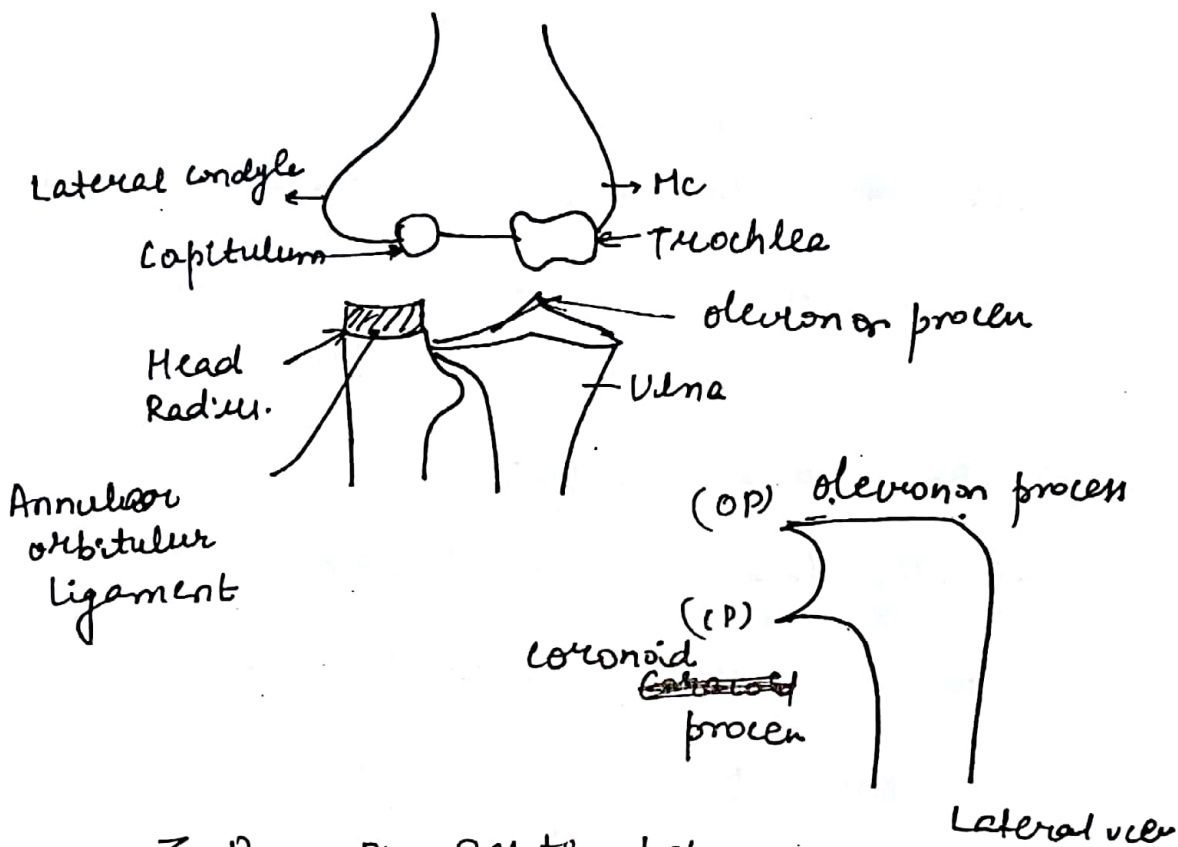 Lateral condyle
Mc
Capitulum
Trochlea
olecronon procen
Head
Radius.
Ulna
Annular
orbitular
ligament
(OP) olecronon process
(CP)
coronoid
procen
Lateral view